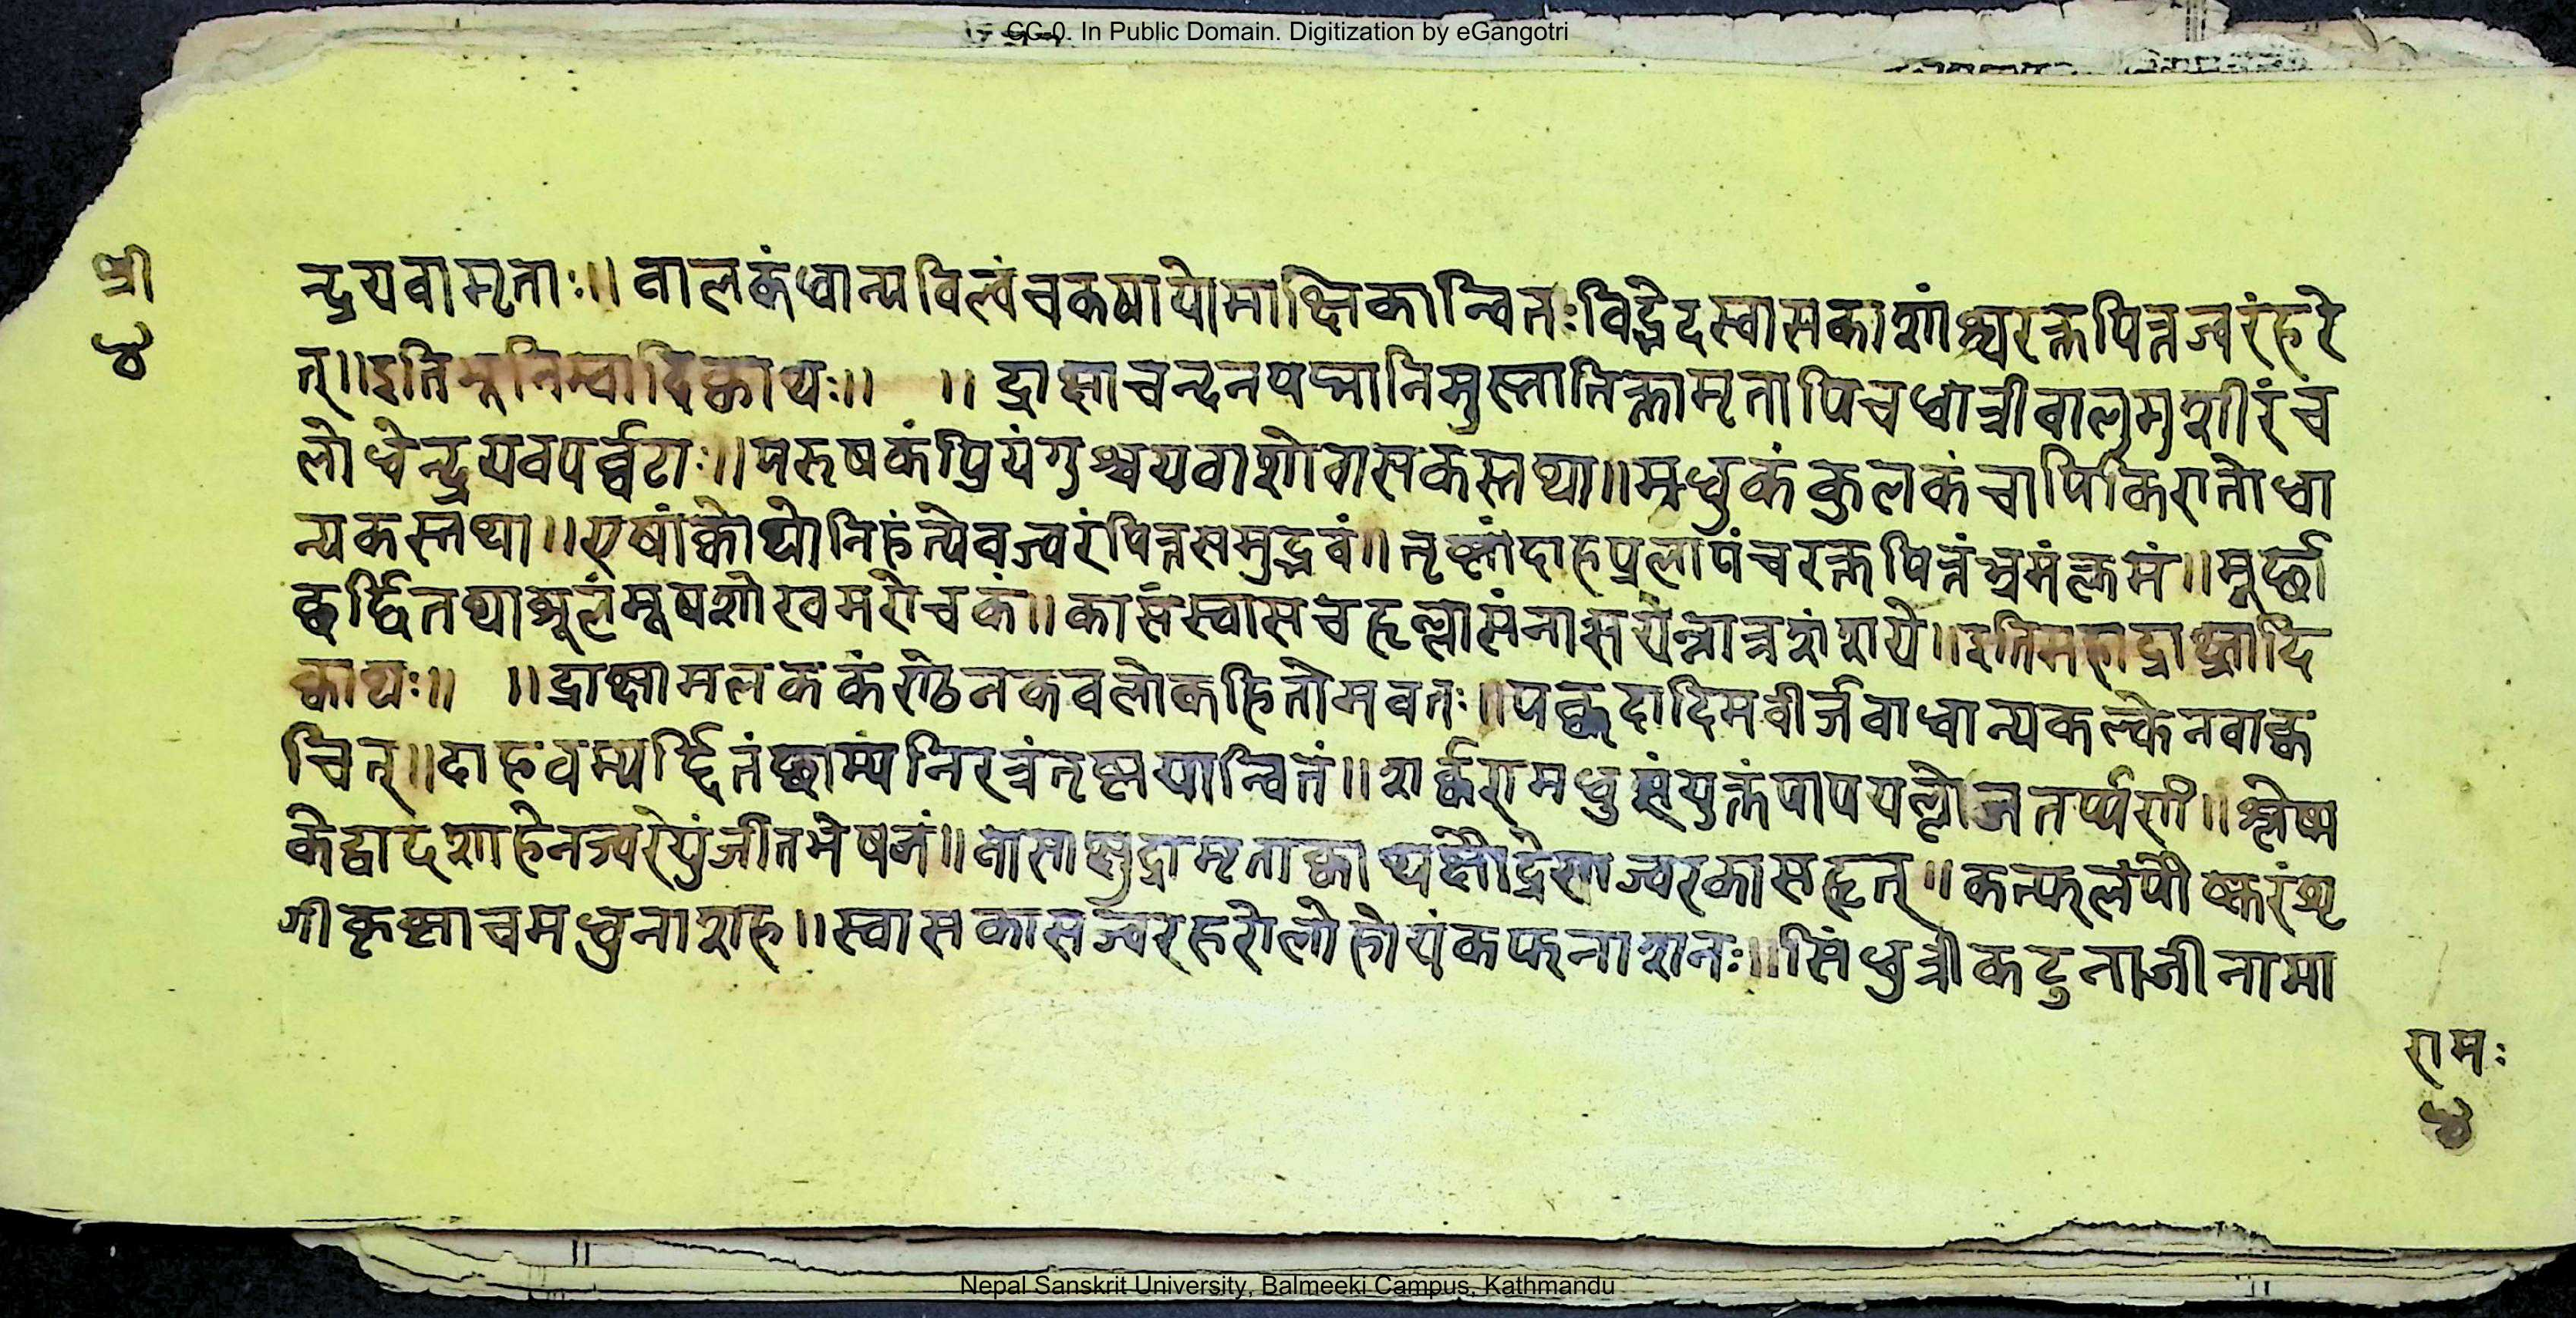 CC-0. In Public Domain. Digitization by eGangotri
श्री
४
न्द्रयवामृताः॥ वालकंधान्यविल्वंचकषायोमाक्षिकान्वितःविड्भेदस्वासकाशांश्चरक्तपित्तज्वरंहरे
त्॥इतिभूनिम्वादिक्वाथः॥ ॥द्राक्षाचन्दनपद्मानिमुस्तातिक्तामृतापिचधात्रीवालमुशीरंच
लोध्रेन्द्रयवपर्व्वटाः॥परुषकंप्रियंगुश्चयवाशोवासकस्तथा॥मधुकंकुलकंचापिकिरातोधा
न्यकस्तथा॥एषांक्वाथोनिहंत्येवज्वरंपित्तसमुद्भवं॥तृष्णांदाहप्रलापंचरक्तपित्तंभ्रमंक्लमं॥मूर्छा
छर्द्दितथाशूलंमूषशोखमरोचकं॥कासंस्वासचहृल्लासंनासयेन्नात्रशंशये॥इतिमहाद्राक्षादि
क्वाथः॥ ॥द्राक्षामलककंल्केनकवलोकहितोमवतः॥पक्वदादिमवीर्जवाधान्यकल्केनवाक्व
चित्॥दाहवम्यर्द्दितंछाम्यंनिरन्नंतृष्णयान्वितं॥शर्क्करामधुसंयुक्तंपापयल्लोजतर्प्पणी॥श्लेष्म
केद्वादशाहेनज्वरेयुंजीतभेषजं॥वासाक्षुद्रामृताक्वाथक्षौद्रेणज्वरकासहृत्॥कन्फलंपौष्करंशृ
गीकृष्णाचमधुनाशह॥स्वासकासज्वरहरोलोहोयंकफनाशनः॥सिंधुत्रीकटुनाजीनामा
रामः
४
Nepal Sanskrit University, Balmeeki Campus, Kathmandu